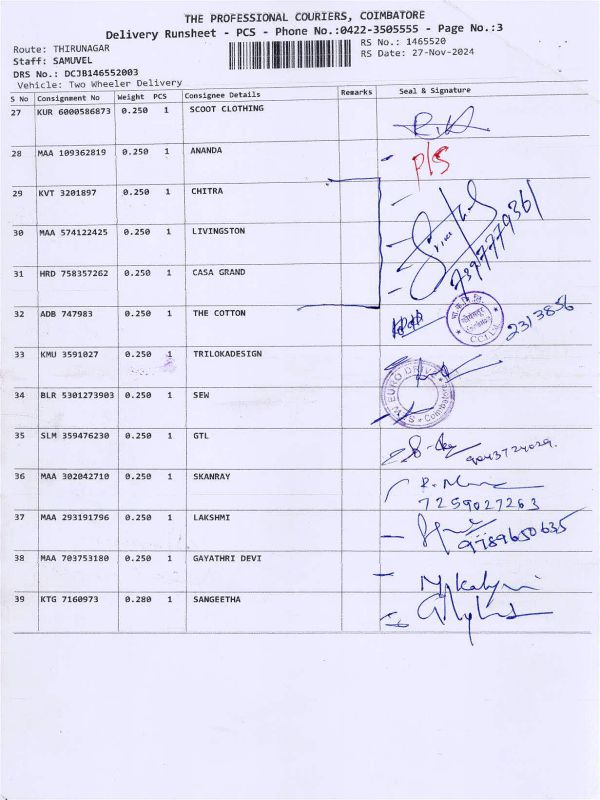 THE PROFESSIONAL COURIERS, COIMBATORE
Delivery Runsheet - PCS - Phone No.:0422-3505555 - Page No.:3
Route: THIRUNAGAR
RS No.: 1465520
Staff: SAMUVEL
RS Date: 27-Nov-2024
DRS No.: DCJB146552003
Vehicle: Two Wheeler Delivery
S No Consignment No Weight PCS Consignee Details Remarks Seal & Signature
27 KUR 6000586873 0.250 1 SCOOT CLOTHING
28 MAA 109362819 0.250 1 ANANDA P/S
29 KVT 3201897 0.250 1 CHITRA
30 MAA 574122425 0.250 1 LIVINGSTON
31 HRD 758357262 0.250 1 CASA GRAND
32 ADB 747983 0.250 1 THE COTTON 2313856
33 KMU 3591027 0.250 1 TRILOKADESIGN
34 BLR 5301273903 0.250 1 SEW
35 SLM 359476230 0.250 1 GTL 9043724029.
36 MAA 302042710 0.250 1 SKANRAY
7259027263
37 MAA 293191796 0.250 1 LAKSHMI 9789650635
38 MAA 703753180 0.250 1 GAYATHRI DEVI
39 KTG 7160973 0.280 1 SANGEETHA